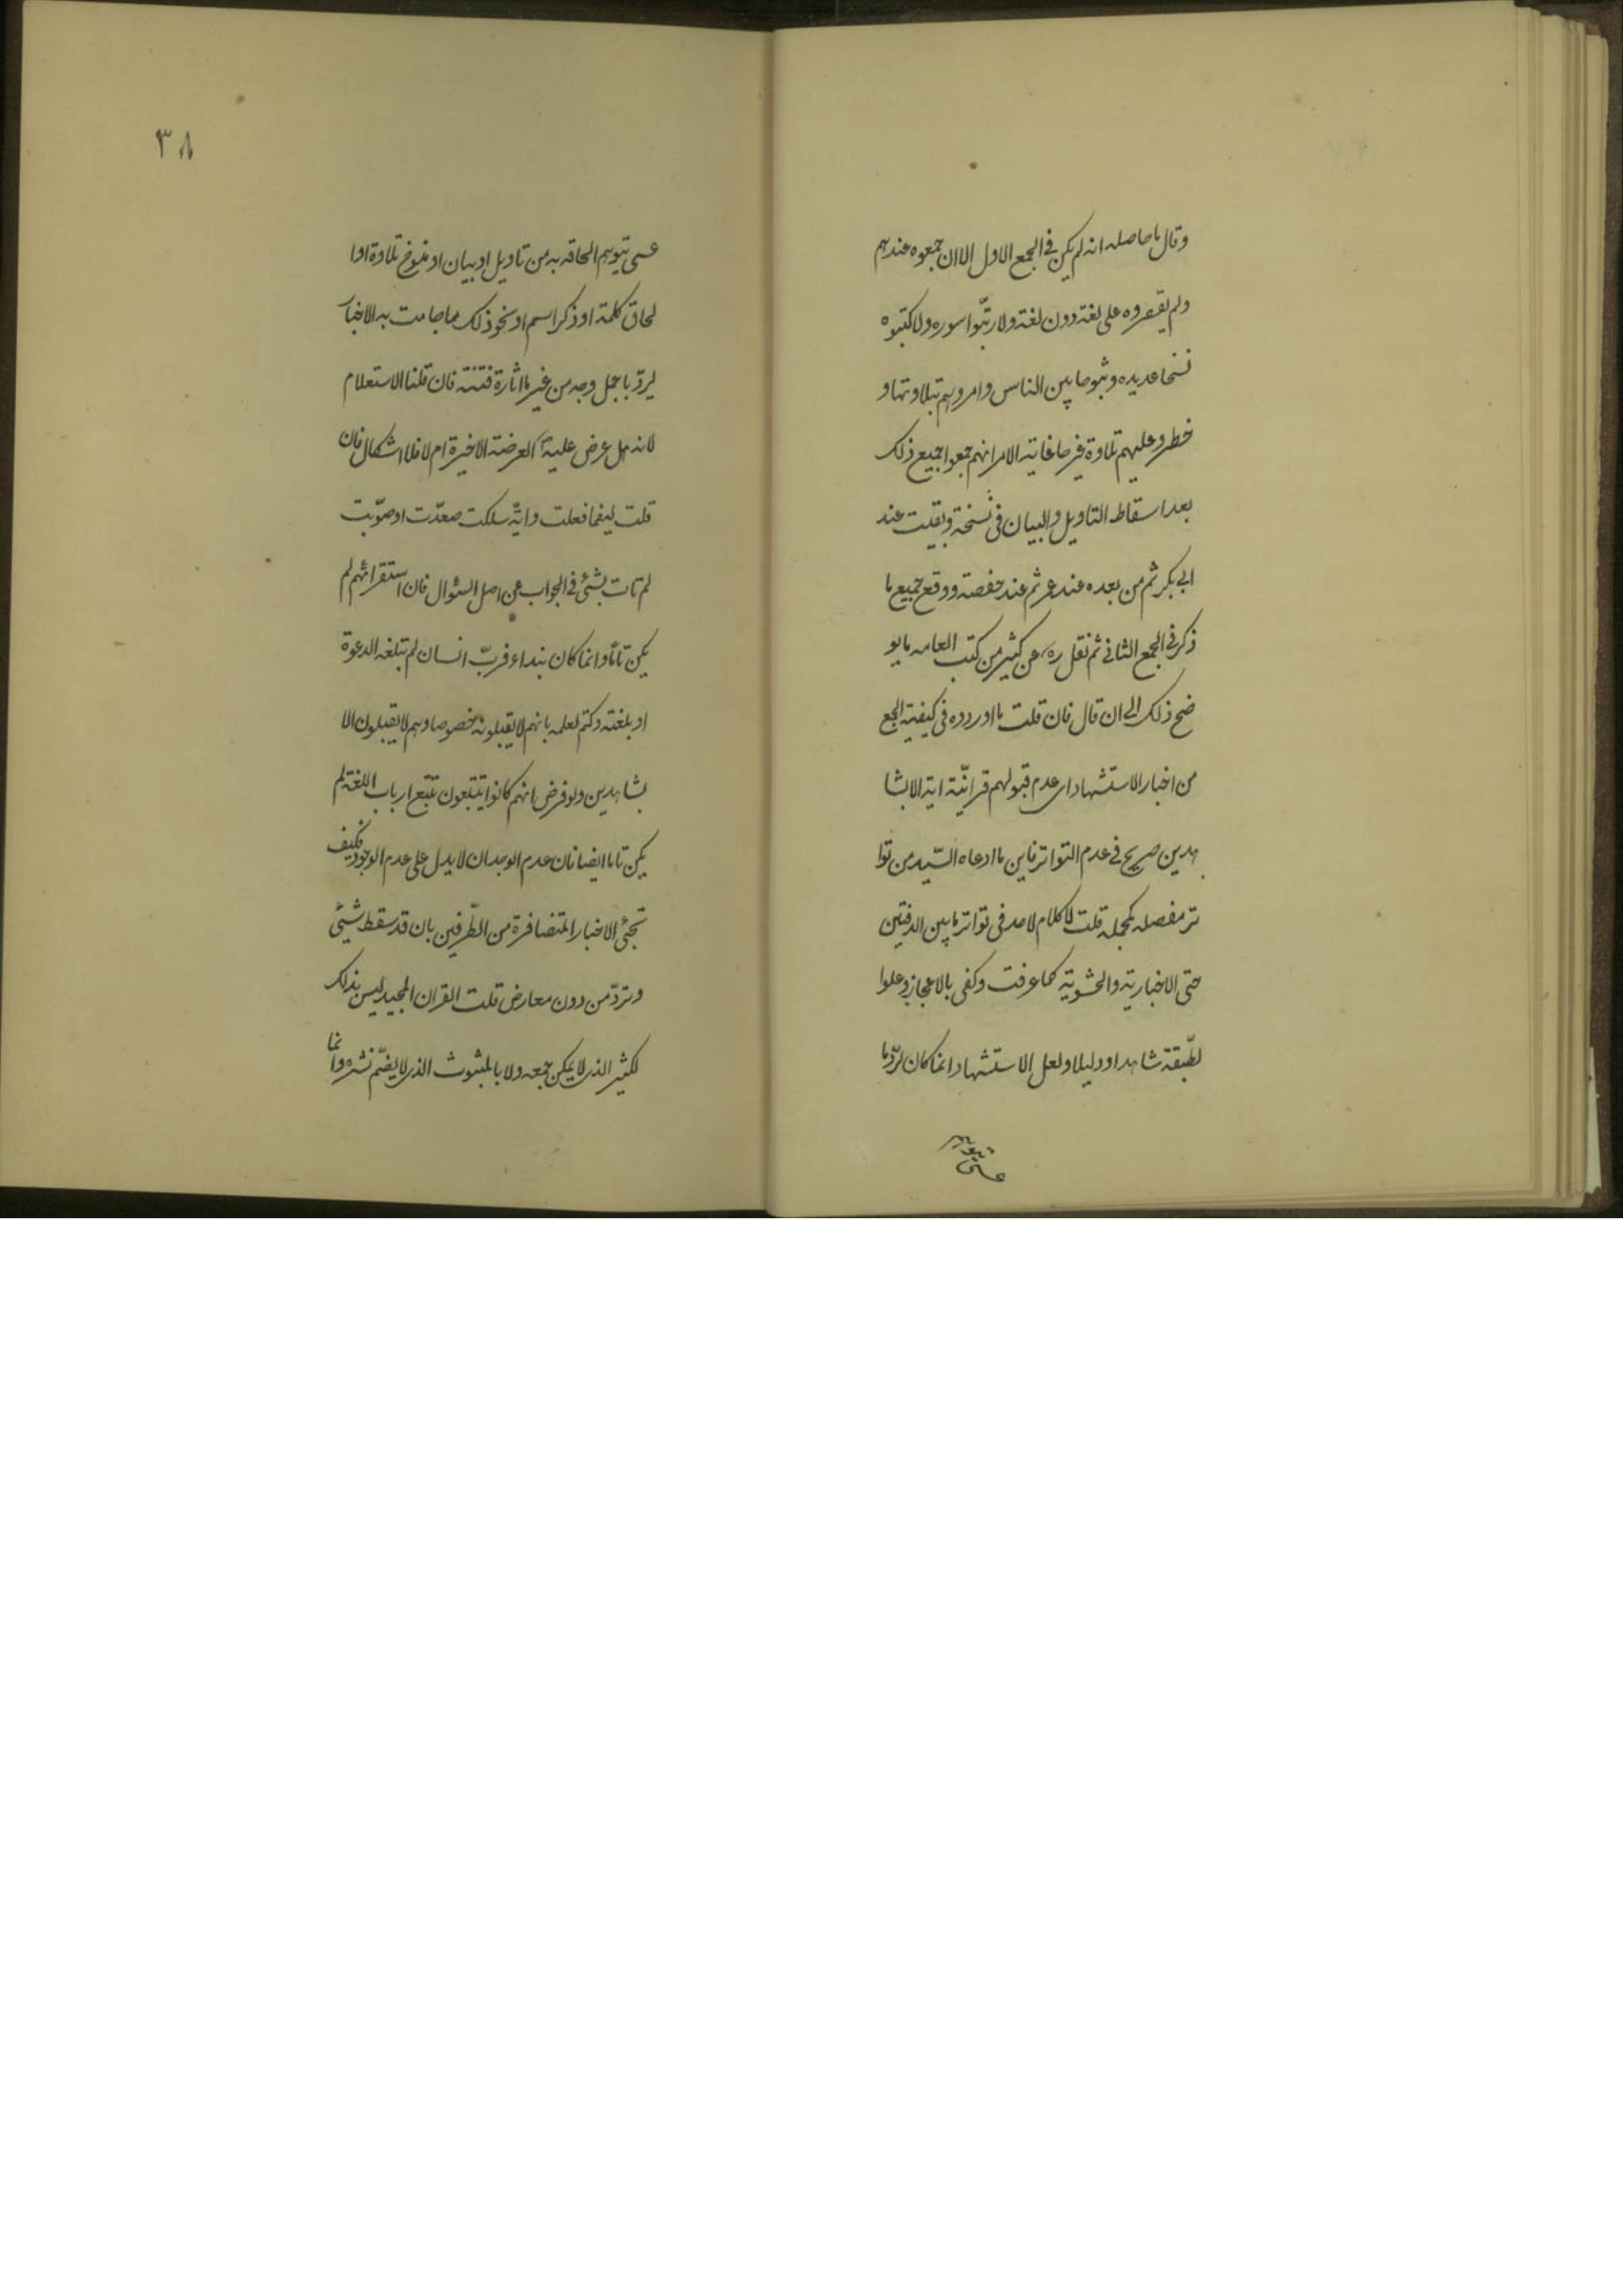 وقال ما حاصله انه لم يكن فى الجمع الاول الا ان جمعوه عندهم
ولم يقصروه على لغة دون لغة ولا رتّبوا سوره ولا كتبوه
نسخا عديده وبثوها بين الناس وامروهم بتلاوتها و
خطروا عليهم تلاوة غيرها غاية الامر انهم جمعوا جميع ذلك
بعد اسقاط التاويل والبيان فى نسخة وبقيت عند
ابى بكر ثم من بعده عند عمر ثم عند حفصة ووقع جميع ما
ذكر فى الجمع الثانى ثم نقل ره عن كثير من كتب العامه ما يو
ضح ذلك الى ان قال فان قلت ما اوردوه فى كيفية الجمع
من اخبار الاستشهاد اى عدم قبولهم قرانيّة اية الا بشا
هدين صريح فى عدم التواتر فاين ما ادعاه السّيد من توا
تر مفصله كمجمله قلت لا كلام لاحد فى تواتر ما بين الدفتين
حتى الاخبارية والحشوية كما عرفت وكفى بالاعجاز وعلوا
لطّبقة شاهدا ودليلا ولعل الاستشهاد انما كان لردّ ما
عسى يتوهم
٣٨
عسى يتوهم الحاقه به من تاويل او بيان او منسوخ تلاوة او ا
لحاق كلمة او ذكر اسم او نحو ذلك مما جاءت به الاخبار
ليردّ باجمل وجه من غير ما اثارة فتنة فان قلنا الاستعلام
لانه هل عرض عليه العرضة الاخيرة ام لا فلا اشكال فان
قلت كيفما فعلت وايّة سلكت صعّدت او صوّبت
لم تات بشئ فى الجواب عن اصل السئوال فان استقرائهم لم
يكن تامّا وانما كان بنداء فربّ انسان لم تبلغه الدعوة
او بلغته وكتم لعلمه بانهم لا يقبلونه خصوصا وهم لا يقبلون الا
بشاهدين ولو فرض انهم كانوا يتتبعون تتبّع ارباب اللغة لم
يكن تاما ايضا فان عدم الوجدان لا يدل على عدم الوجود فكيف
تجئ الاخبار المتضافرة من الطّرفين بان قد سقط شيئ
وتردّ من دون معارض قلت القران المجيد ليس بذلك
لكثير الذى لا يمكن جمعه ولا بالمبثوث الذى لا يضمّ نشره وانما